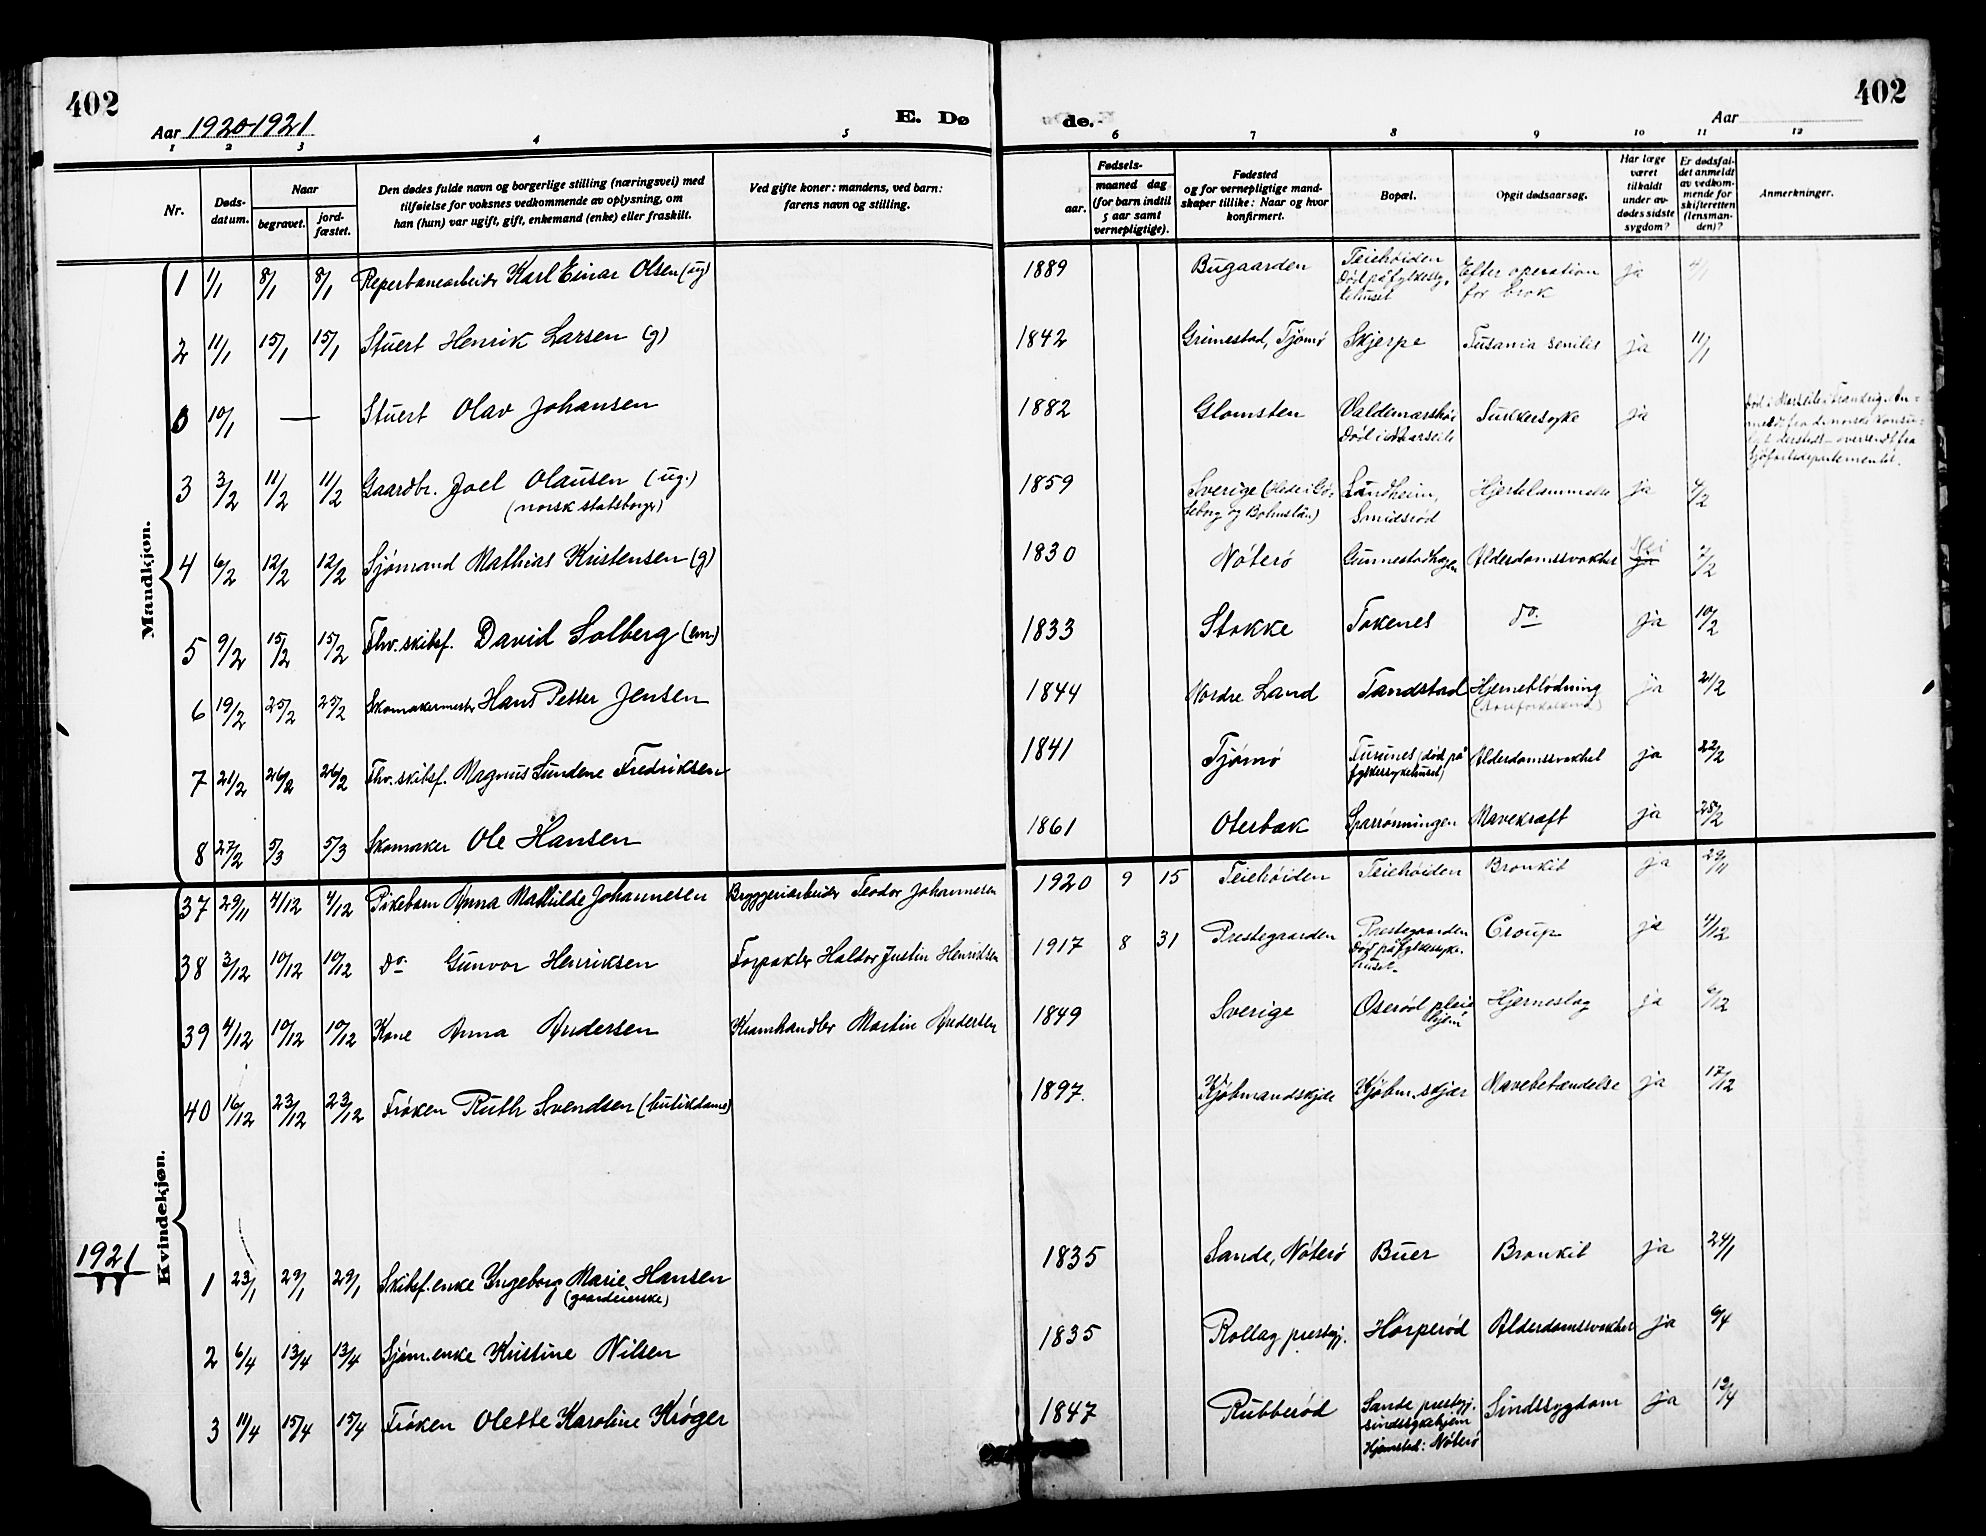 402
402
Aar 1920-1921
E. Dø
de.
Aar
1 2 3 4 5 6 7 8 9 10 11 12
Nr.
Døds-
datum.
Naar
begravet.
jord-
fæstet.
Den dødes fulde navn og borgerlige stilling (næringsvei) med
tilføielse for voksnes vedkommende av oplysning, om
han (hun) var ugift, gift, enkemand (enke) eller fraskilt.
Ved gifte koner: mandens, ved barn:
farens navn og stilling.
Fødsels-
aar.
maaned dag
(for barn indtil
5 aar samt
vernepligtige).
Fødested
og for vernepligtige mand-
skaper tillike: Naar og hvor
konfirmert.
Bopæl.
Opgit dødsaarsag.
Har læge
været
tilkaldt
under av-
dødes sidste
sygdom?
Er dødsfal-
det anmeldt
av vedkom-
mende for
skifteretten
(lensman-
den)?
Anmerkninger.
Mandkjøn.
1 1/1 8/1 8/1 Reperbanearbeider Karl Einar Olsen (ug) 1889 Bugaarden Teiehøiden Efter operation ja 4/1
Død på fylkessy-
kehuset
for brok
2 11/1 15/1 15/1 Stuert Henrik Larsen (g) 1842 Grimestad, Tjømø Skjerpe senilis ja 11/1
0 10/1 — Stuert Olav Johansen 1882 Glomsten Valdemarshøi Sukkersyke ja
Død i Marseile
3 3/2 11/2 11/2 Gaardbr. Joel Olausen (ug.) 1859 Sverige Sundheim, Hjertelammelse ja 4/2
(norsk statsborger)
Smidsrød
4 6/2 12/2 12/2 Sjømand Mathias Kristensen (g) 1830 Nøterø Gunnestadhagen Alderdomssvakhet Nei ja 7/2
5 9/2 15/2 15/2 Fhv. skibsf. David Solberg (em.) 1833 Stokke Tokenes do. ja 10/2
6 19/2 25/2 25/2 Skomakermester Hans Petter Jensen 1844 Nordre Land Tandstad Hjerneblødning ja 21/2
7 21/2 26/2 26/2 Fhv. skibsf. Magnus Sundene Fredriksen 1841 Tjømø (død på Alderdomssvakhet ja 22/2
fylkessykehuset)
8 27/2 5/3 5/3 Skomaker Ole Hansen 1861 Oterbæk Sparrønningen Mavekræft ja 28/2
Kvindekjøn.
37 29/11 4/12 4/12 Pikebarn Anna Mathilde Johannesen Bryggeriarbeider Teodor Johannesen 1920 9 15 Teiehøiden Teiehøiden Bronkit ja 29/11
38 3/12 10/12 10/12 Do. Gunvor Henriksen Forpakter Haldor Justin Henriksen 1917 8 31 Prestegaarden Prestegaarden Croup ja 4/12
Død på fylkessyke-
huset
39 4/12 10/12 10/12 Kone Anna Andersen Kramhandler Martin Andersen 1849 Sverige Oserød pleie Hjerneslag ja 6/12
hjem
40 16/12 23/12 23/12 Frøken Ruth Svendsen (butikdame) 1897. Kjøbmandskjær Kjøbm.skjær Mavebetændelse ja 17/12
1921
1 23/1 29/1 29/1 Skibsf.enke Yngeborg Marie Hansen 1835 Sande, Nøterø Buer Bronkit ja 24/1
(gaardeierske)
2 6/4 13/4 13/4 Sjøm.enke Kristine Nilsen 1835 Rollag prestgj. Horperød Alderdomssvakhet ja 6/4
3 11/4 15/4 15/4 Frøken Olette Karoline Krøger 1847 Rubberød Sande prestgj. Sindssygdom ja 12/4
sindssykehjem
Hjemsted: Nøterø